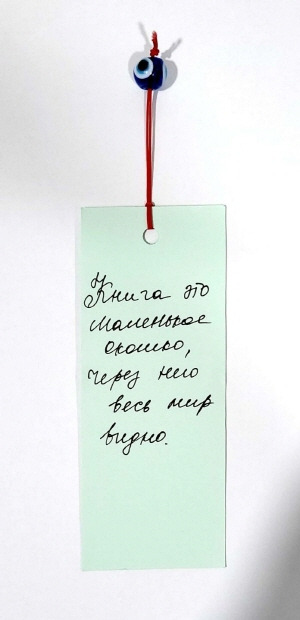 Книга это
маленькое
окошко,
через него
весь мир
видно.